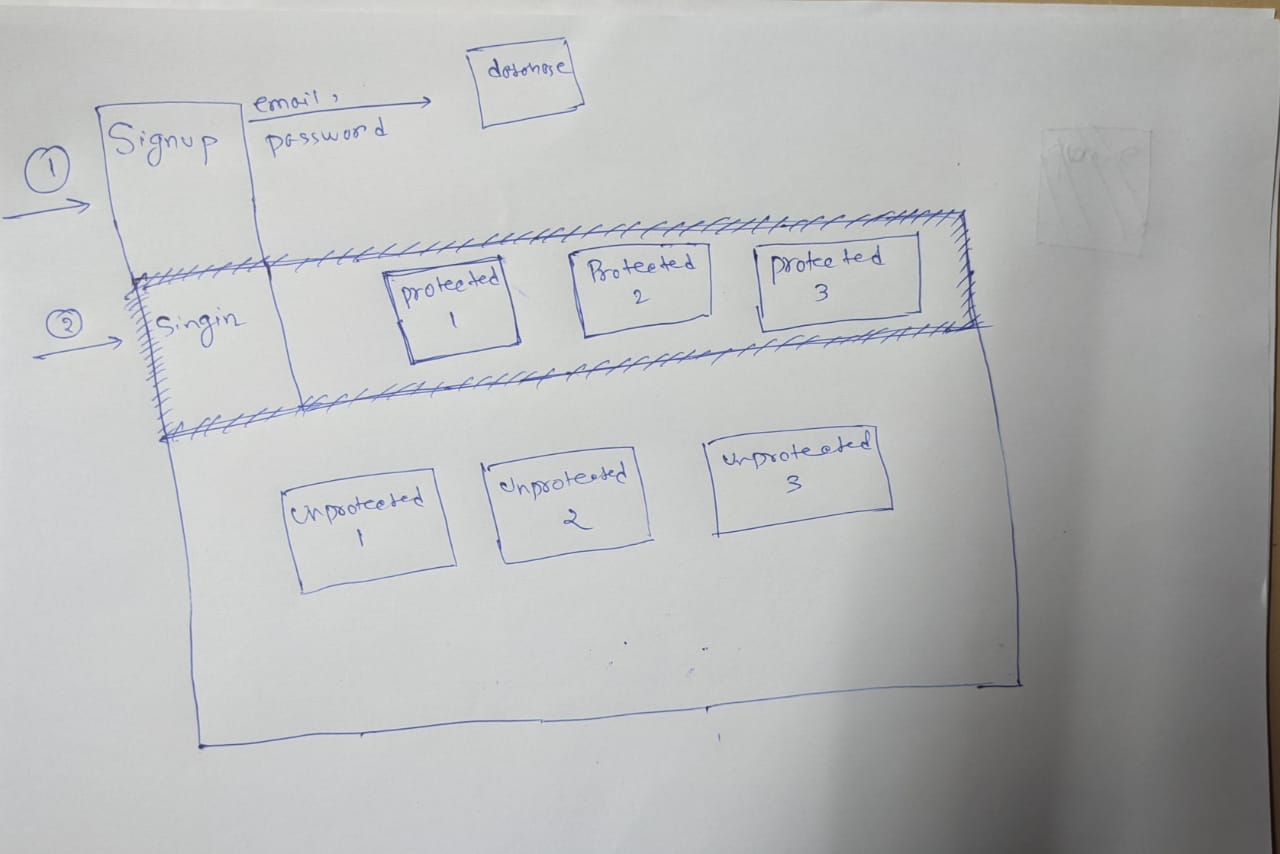 ①
Signup
email,
password
database
②
Singin
protected
1
Protected
2
protected
3
unprotected
1
unprotected
2
unprotected
3